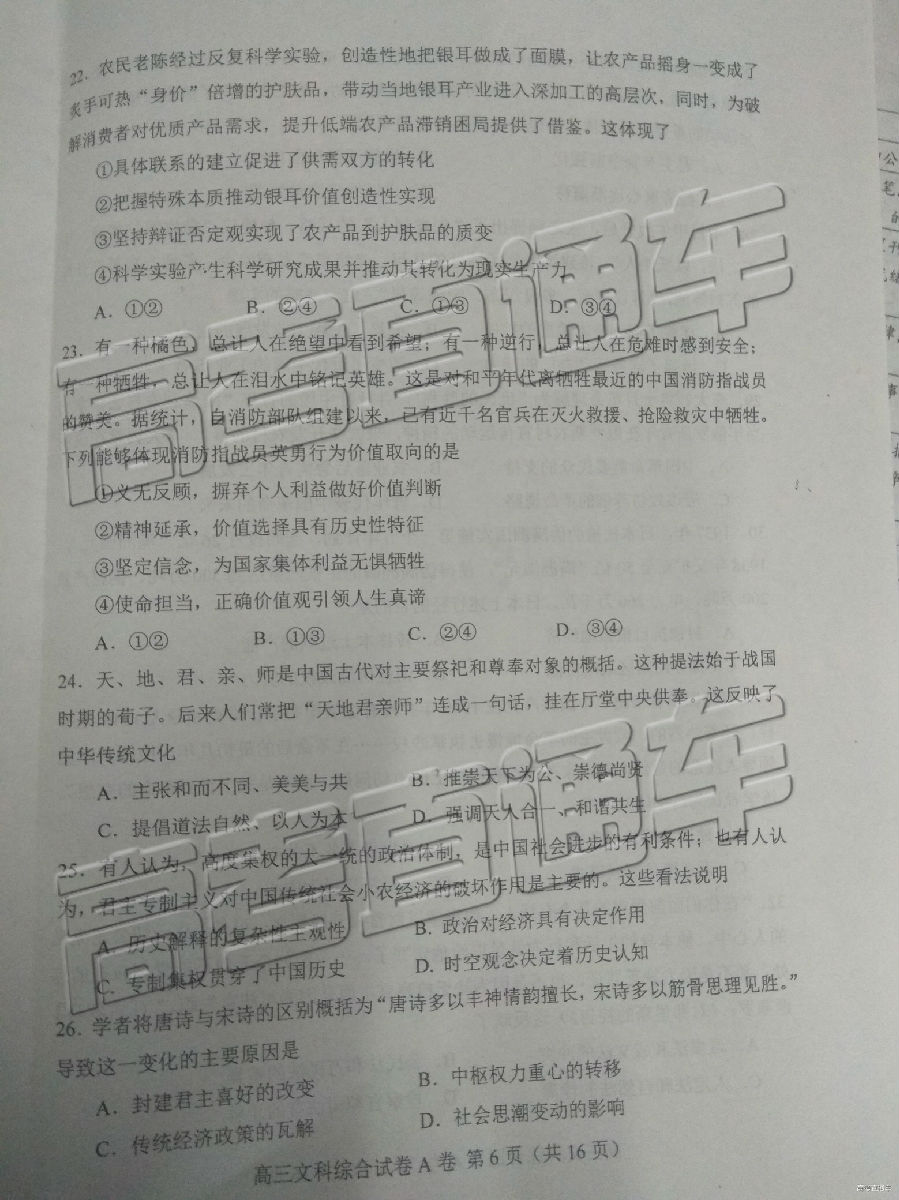 22．农民老陈经过反复科学实验，创造性地把银耳做成了面膜，让农产品摇身一变成了
炙手可热“身价”倍增的护肤品，带动当地银耳产业进入深加工的高层次，同时，为破
解消费者对优质产品需求，提升低端农产品滞销困局提供了借鉴。这体现了
①具体联系的建立促进了供需双方的转化
②把握特殊本质推动银耳价值创造性实现
③坚持辩证否定观实现了农产品到护肤品的质变
④科学实验产生科学研究成果并推动其转化为现实生产力
A．①② B．②④ C．①③ D．③④
23．有一种橘色，总让人在绝望中看到希望；有一种逆行，总让人在危难时感到安全；
有一种牺牲，总让人在泪水中铭记英雄。这是对和平年代离牺牲最近的中国消防指战员
的赞美。据统计，自消防部队组建以来，已有近千名官兵在灭火救援、抢险救灾中牺牲。
下列能够体现消防指战员英勇行为价值取向的是
①义无反顾，摒弃个人利益做好价值判断
②精神延承，价值选择具有历史性特征
③坚定信念，为国家集体利益无惧牺牲
④使命担当，正确价值观引领人生真谛
A．①② B．①③ C．②④ D．③④
24．天、地、君、亲、师是中国古代对主要祭祀和尊奉对象的概括。这种提法始于战国
时期的荀子。后来人们常把“天地君亲师”连成一句话，挂在厅堂中央供奉。这反映了
中华传统文化
A．主张和而不同、美美与共 B．推崇天下为公、崇德尚贤
C．提倡道法自然、以人为本 D．强调天人合一、和谐共生
25．有人认为，高度集权的大一统的政治体制，是中国社会进步的有利条件；也有人认
为，君主专制主义对中国传统社会小农经济的破坏作用是主要的。这些看法说明
A．历史解释的复杂性主观性 B．政治对经济具有决定作用
C．专制集权贯穿了中国历史 D．时空观念决定着历史认知
26．学者将唐诗与宋诗的区别概括为“唐诗多以丰神情韵擅长，宋诗多以筋骨思理见胜。”
导致这一变化的主要原因是
A．封建君主喜好的改变 B．中枢权力重心的转移
C．传统经济政策的瓦解 D．社会思潮变动的影响
高三文科综合试卷 A 卷 第 6 页（共 16 页）
高考直通车
高考直通车